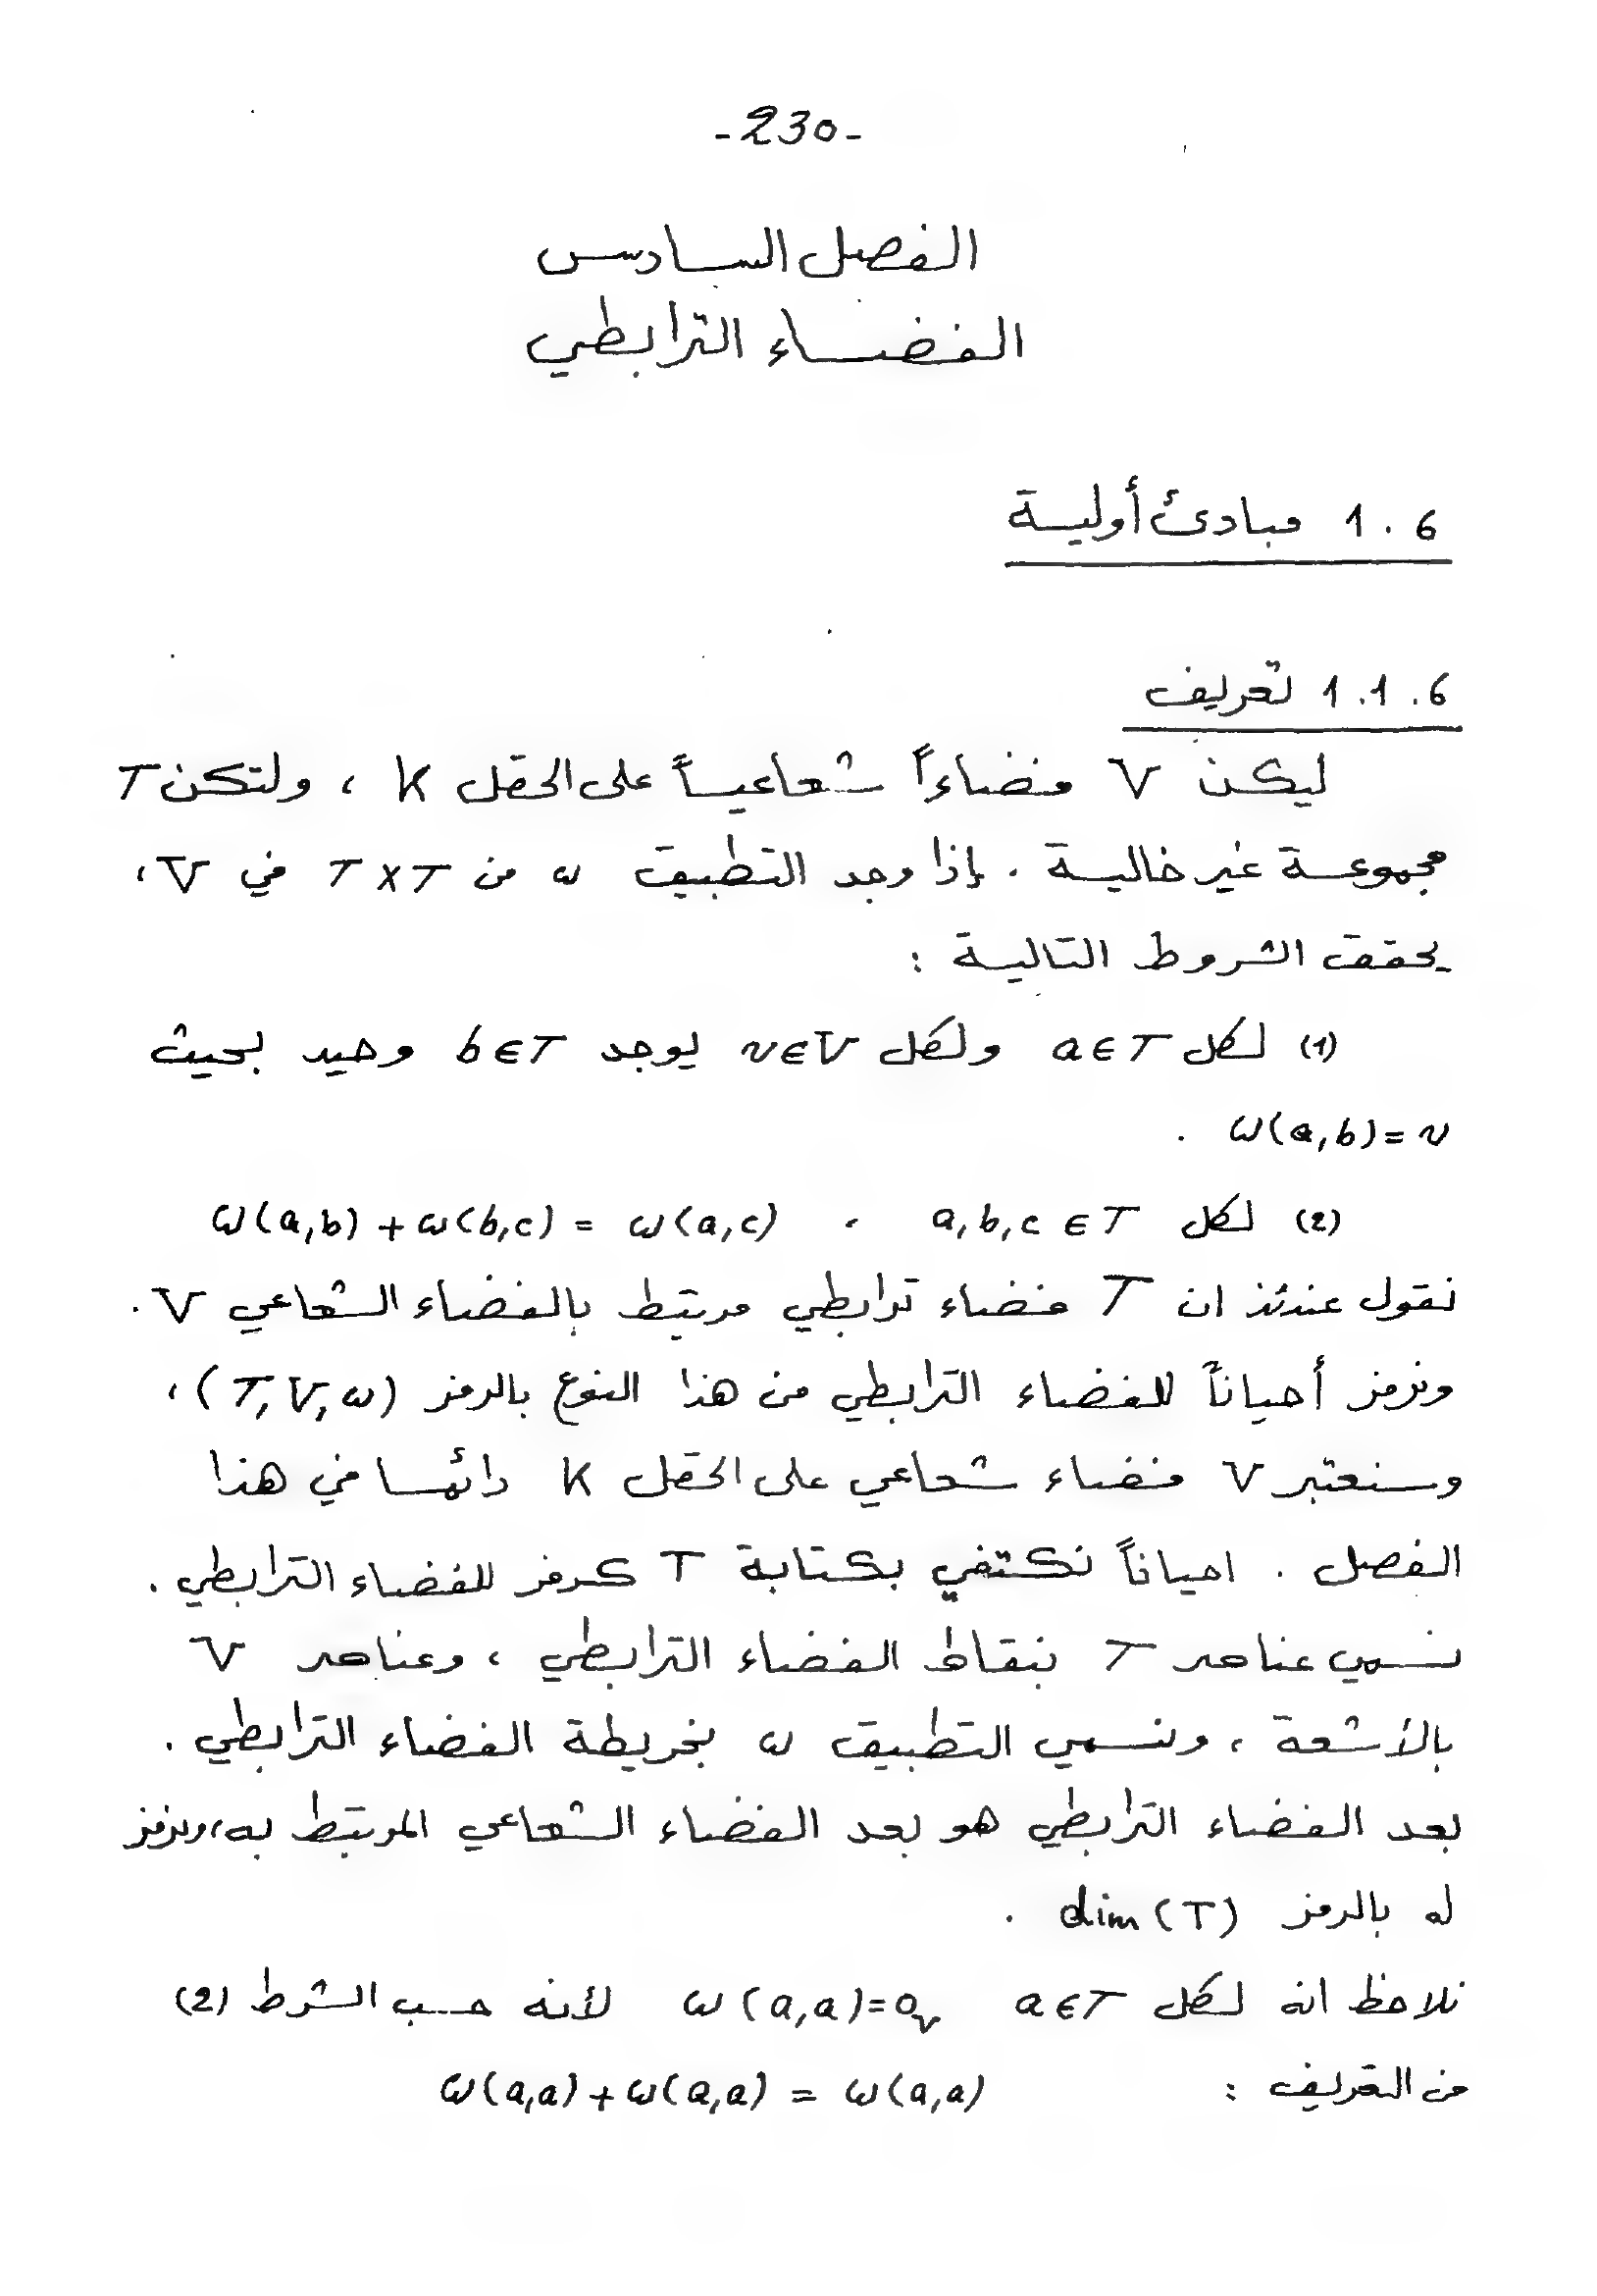 -230-
الفصل السادس
الفضاء الترابطي
1.6 مبادئ أولية
1.1.6 تعريف
ليكن V فضاءاً شعاعياً على الحقل K ، ولتكن T
مجموعة غير خالية . إذا وجد التطبيق ω من T×T في V ،
يحقق الشروط التالية :
(1) لكل a∈T ولكل v∈V يوجد b∈T وحيد بحيث
ω(a,b)=v .
(2) لكل a,b,c ∈T ، ω(a,b)+ω(b,c) = ω(a,c)
نقول عندئذ ان T فضاء ترابطي مرتبط بالفضاء الشعاعي V .
ونرمز أحياناً للفضاء الترابطي من هذا النوع بالرمز (T,V,ω) ،
وسنعتبر V فضاء شعاعي على الحقل K دائما في هذا
الفصل . احياناً نكتفي بكتابة T كرمز للفضاء الترابطي .
نسمي عناصر T بنقاط الفضاء الترابطي ، وعناصر V
بالأشعة ، ونسمي التطبيق ω بخريطة الفضاء الترابطي .
بعد الفضاء الترابطي هو بعد الفضاء الشعاعي المرتبط به ، ونرمز
له بالرمز dim(T) .
نلاحظ انه لكل a∈T ω(a,a)=0_V لأنه حسب الشرط (2)
من التعريف : ω(a,a)+ω(a,a) = ω(a,a)